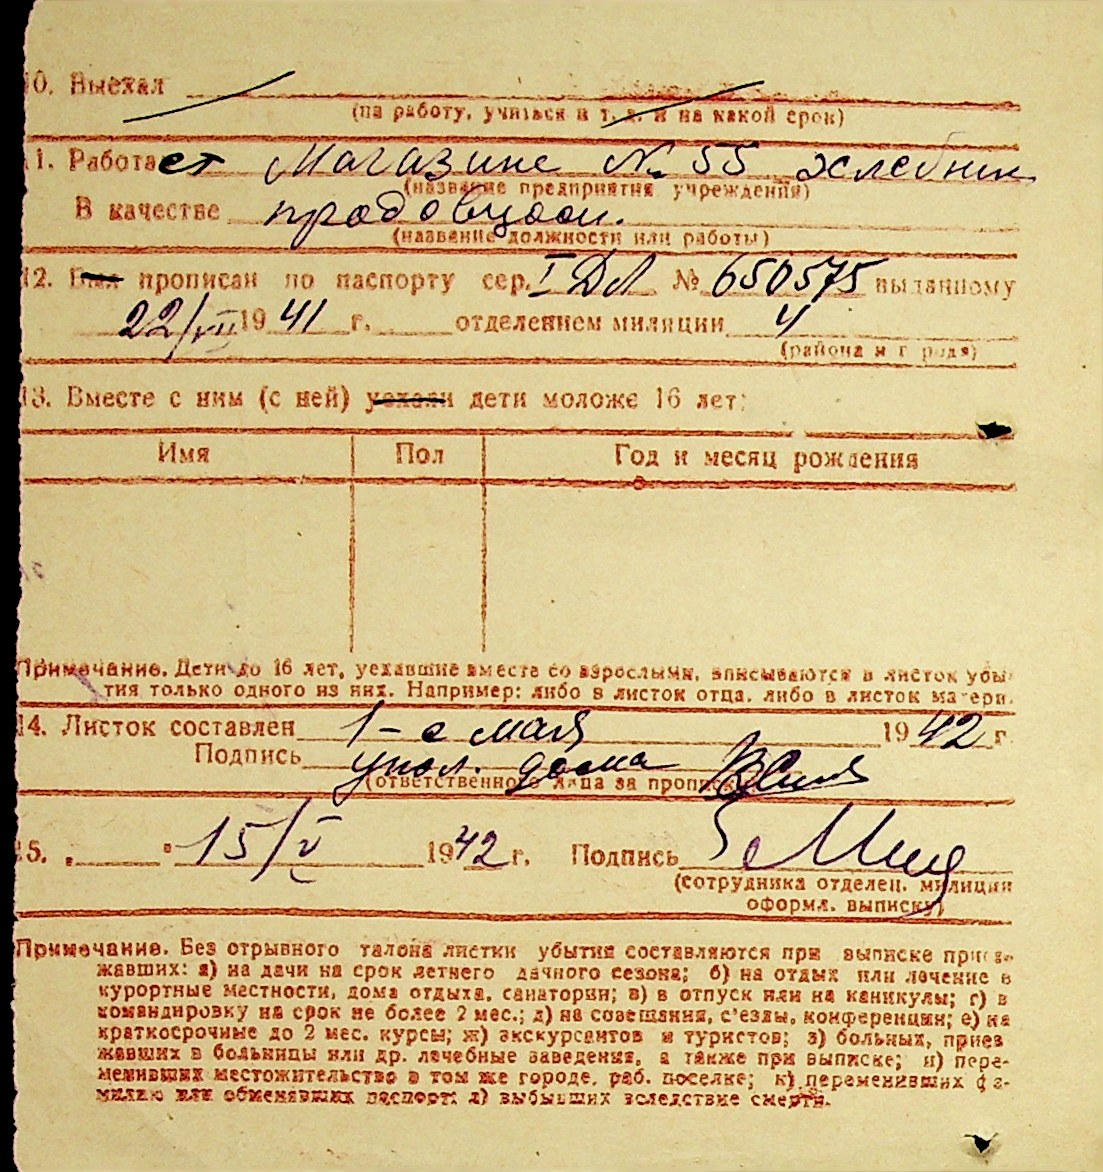 10. Выехал
(на работу, учиться и т. д. и на какой срок)
11. Работает Магазине № 55 хлебник
(название предприятия учреждения)
В качестве продовцом.
(название должности или работы)
12. Был прописан по паспорту сер. I ДЛ № 650575 выданному
22/VII 1941 г. отделением милиции 4
(района и г рода)
13. Вместе с ним (с ней) уехали дети моложе 16 лет:
Имя Пол Год и месяц рождения
Примечание. Дети до 16 лет, уехавшие вместе со взрослыми, вписываются в листок убы-
тия только одного из них. Например: либо в листок отца, либо в листок матери.
14. Листок составлен 1-е мая 1942 г.
Подпись упол. дома
(ответственного лица за прописку)
15. „ " 15/V 1942 г. Подпись
(сотрудника отделен. милиции
оформл. выписку)
Примечание. Без отрывного талона листки убытия составляются при выписке приез-
жавших: а) на дачи на срок летнего дачного сезона; б) на отдых или лечение в
курортные местности, дома отдыха, санатории; в) в отпуск или на каникулы; г) в
командировку на срок не более 2 мес.; д) на совещания, с'езды, конференции; е) на
краткосрочные до 2 мес. курсы; ж) экскурсантов и туристов; з) больных, приез
жавших в больницы или др. лечебные заведения, а также при выписке; и) пере-
менивших местожительство в том же городе, раб. поселке; к) переменивших фа-
милию или обменявших паспорт; л) выбывших вследствие смерти.